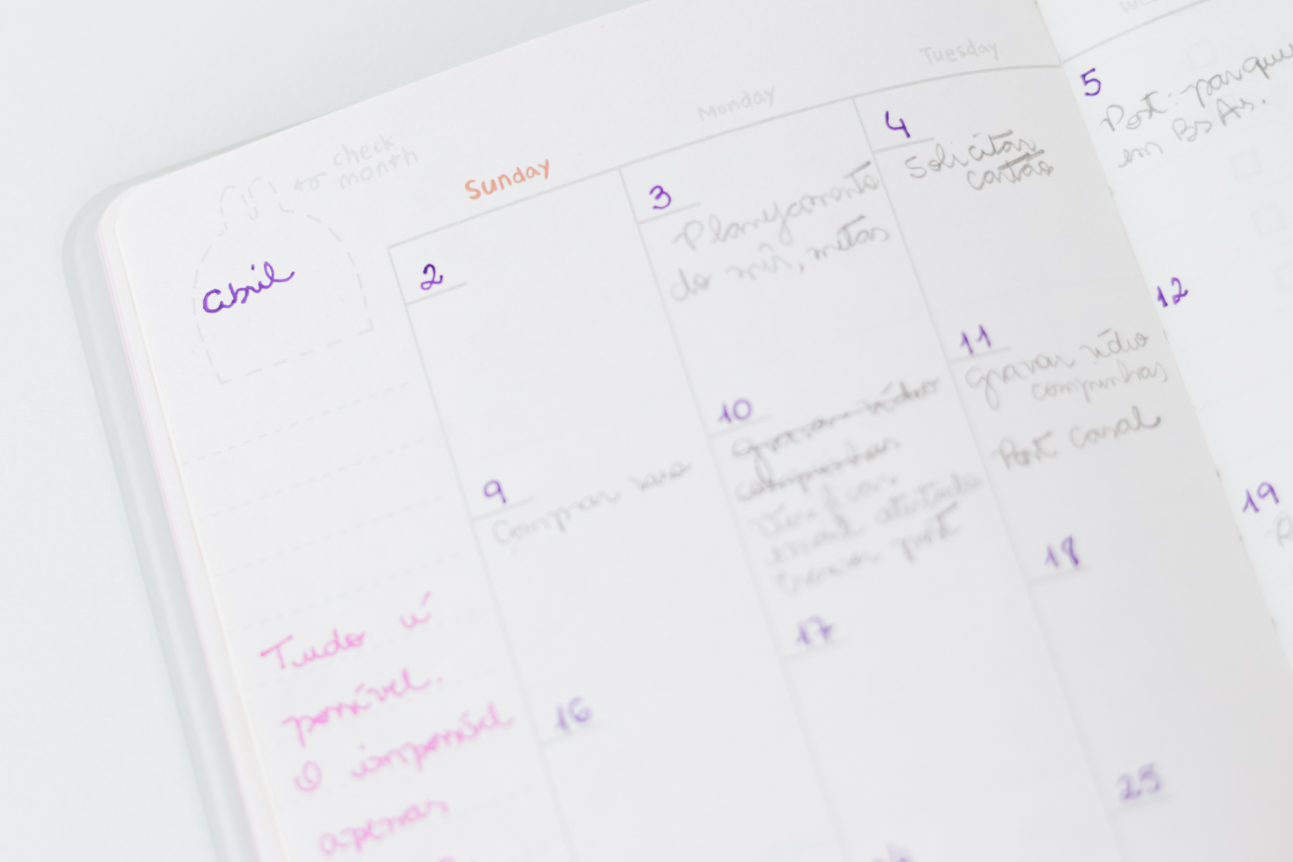 Tuesday
Monday
check
month
Sunday
abril
2
3
Planejamento
do mês, metas
4
Solicitar
cartão
5
Post: parque
em BsAs.
9
Comprar
10
gravar vídeo
comprinhas
email
post
11
gravar vídeo
comprinhas
Post canal
12
16
17
18
19
25
Tudo é
possível.
O impossível
apenas